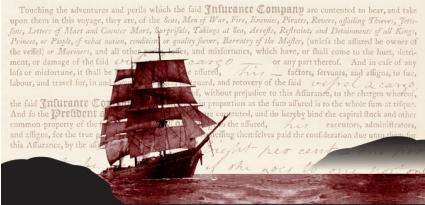 Touching the adventures and perils which the said Insurance Company are contented to bear, and take
upon them in this voyage, they are, of the Seas, Men of War, Fire, Enemies, Pirates, Rovers, assailing Thieves, Jetti-
sons, Letters of Mart and Counter Mart, Surprisals, Takings at Sea, Arrests, Restraints and Detainments of all Kings,
Princes, or People, of what nation, condition or quality soever, Barratry of the Master, (unless the assured be owner of
the vessel) or Mariners, and all other losses, and misfortunes, which have, or shall come to the hurt, detri-
ment, or damage of the said cargo or any part thereof. And in case of any
loss or misfortune, it shall be assured, his factors, servants, and assigns, to sue,
labour, and travel for, in and guard, and recovery of the said vessel & cargo
of, without prejudice to this Assurance, to the charges whereof
the said Insurance Co proportion as the sum assured is to the whole sum at risque.
And so the President contented, and do hereby bind the capital stock and other
common property of the the assured, his executors, administrators,
and assigns, for the true essing themselves paid the consideration due unto them for
this Assurance, by the as eight per cent